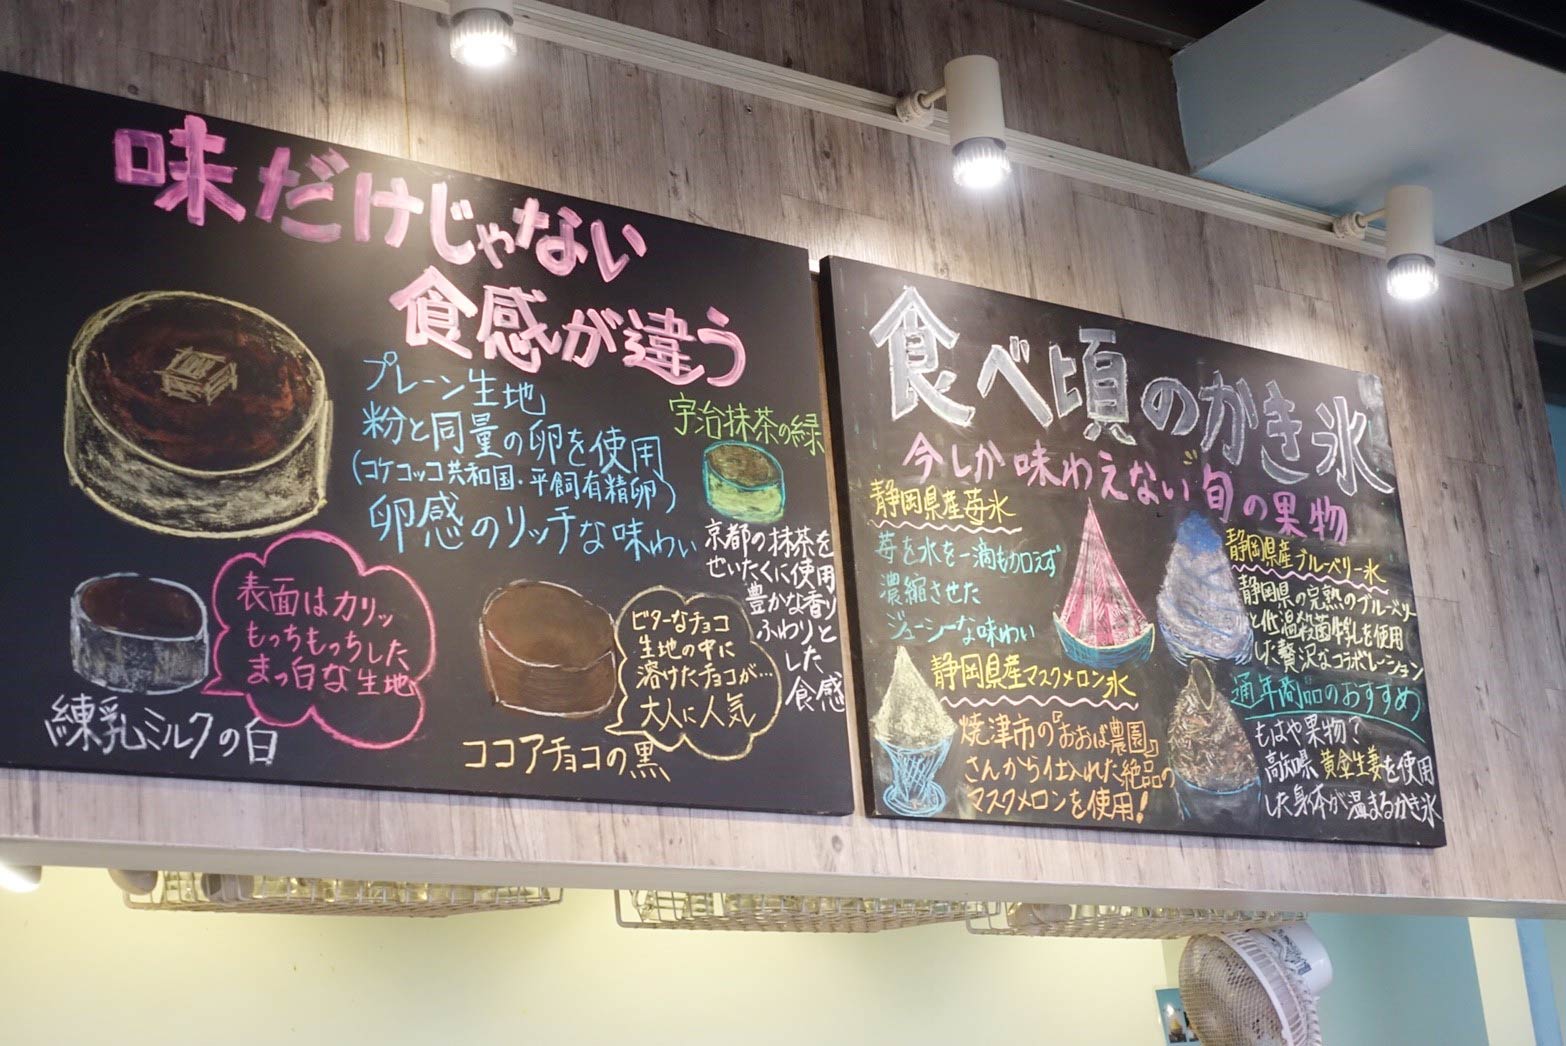 味だけじゃない
食感が違う
プレーン生地
粉と同量の卵を使用
(コケコッコ共和国・平飼有精卵)
卵感のリッチな味わい
宇治抹茶の緑
京都の抹茶を
ぜいたくに使用
豊かな香り
ふわりと
した
食感
表面はカリッ
もっちもっちした
まっ白な生地
練乳ミルクの白
ビターなチョコ
生地の中に
溶けたチョコが…
大人に人気
ココアチョコの黒
食べ頃のかき氷
今しか味わえない旬の果物
静岡県産苺氷
苺を水を一滴も加えず
濃縮させた
ジューシーな味わい
静岡県産マスクメロン氷
焼津市の『おおば農園』
さんから仕入れた絶品の
マスクメロンを使用!
静岡県産ブルーベリー氷
静岡県の完熟のブルーベリー
と低温殺菌牛乳を使用
した贅沢なコラボレーション
通年商品のおすすめ
もはや果物?
高知県 黄金生姜を使用
した身体が温まるかき氷